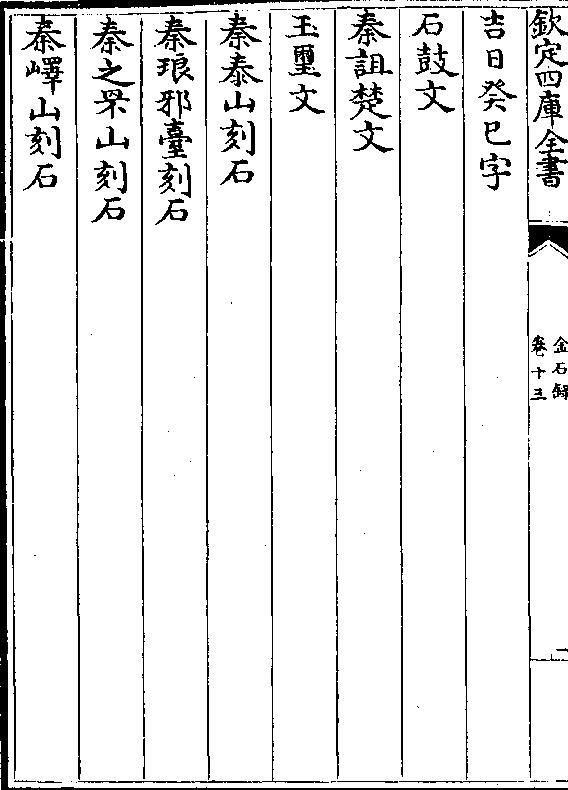 欽定四庫全書
金石録
卷十三
二
吉日癸巳字
石鼓文
秦詛楚文
玉璽文
秦泰山刻石
秦琅邪臺刻石
秦之罘山刻石
秦嶧山刻石